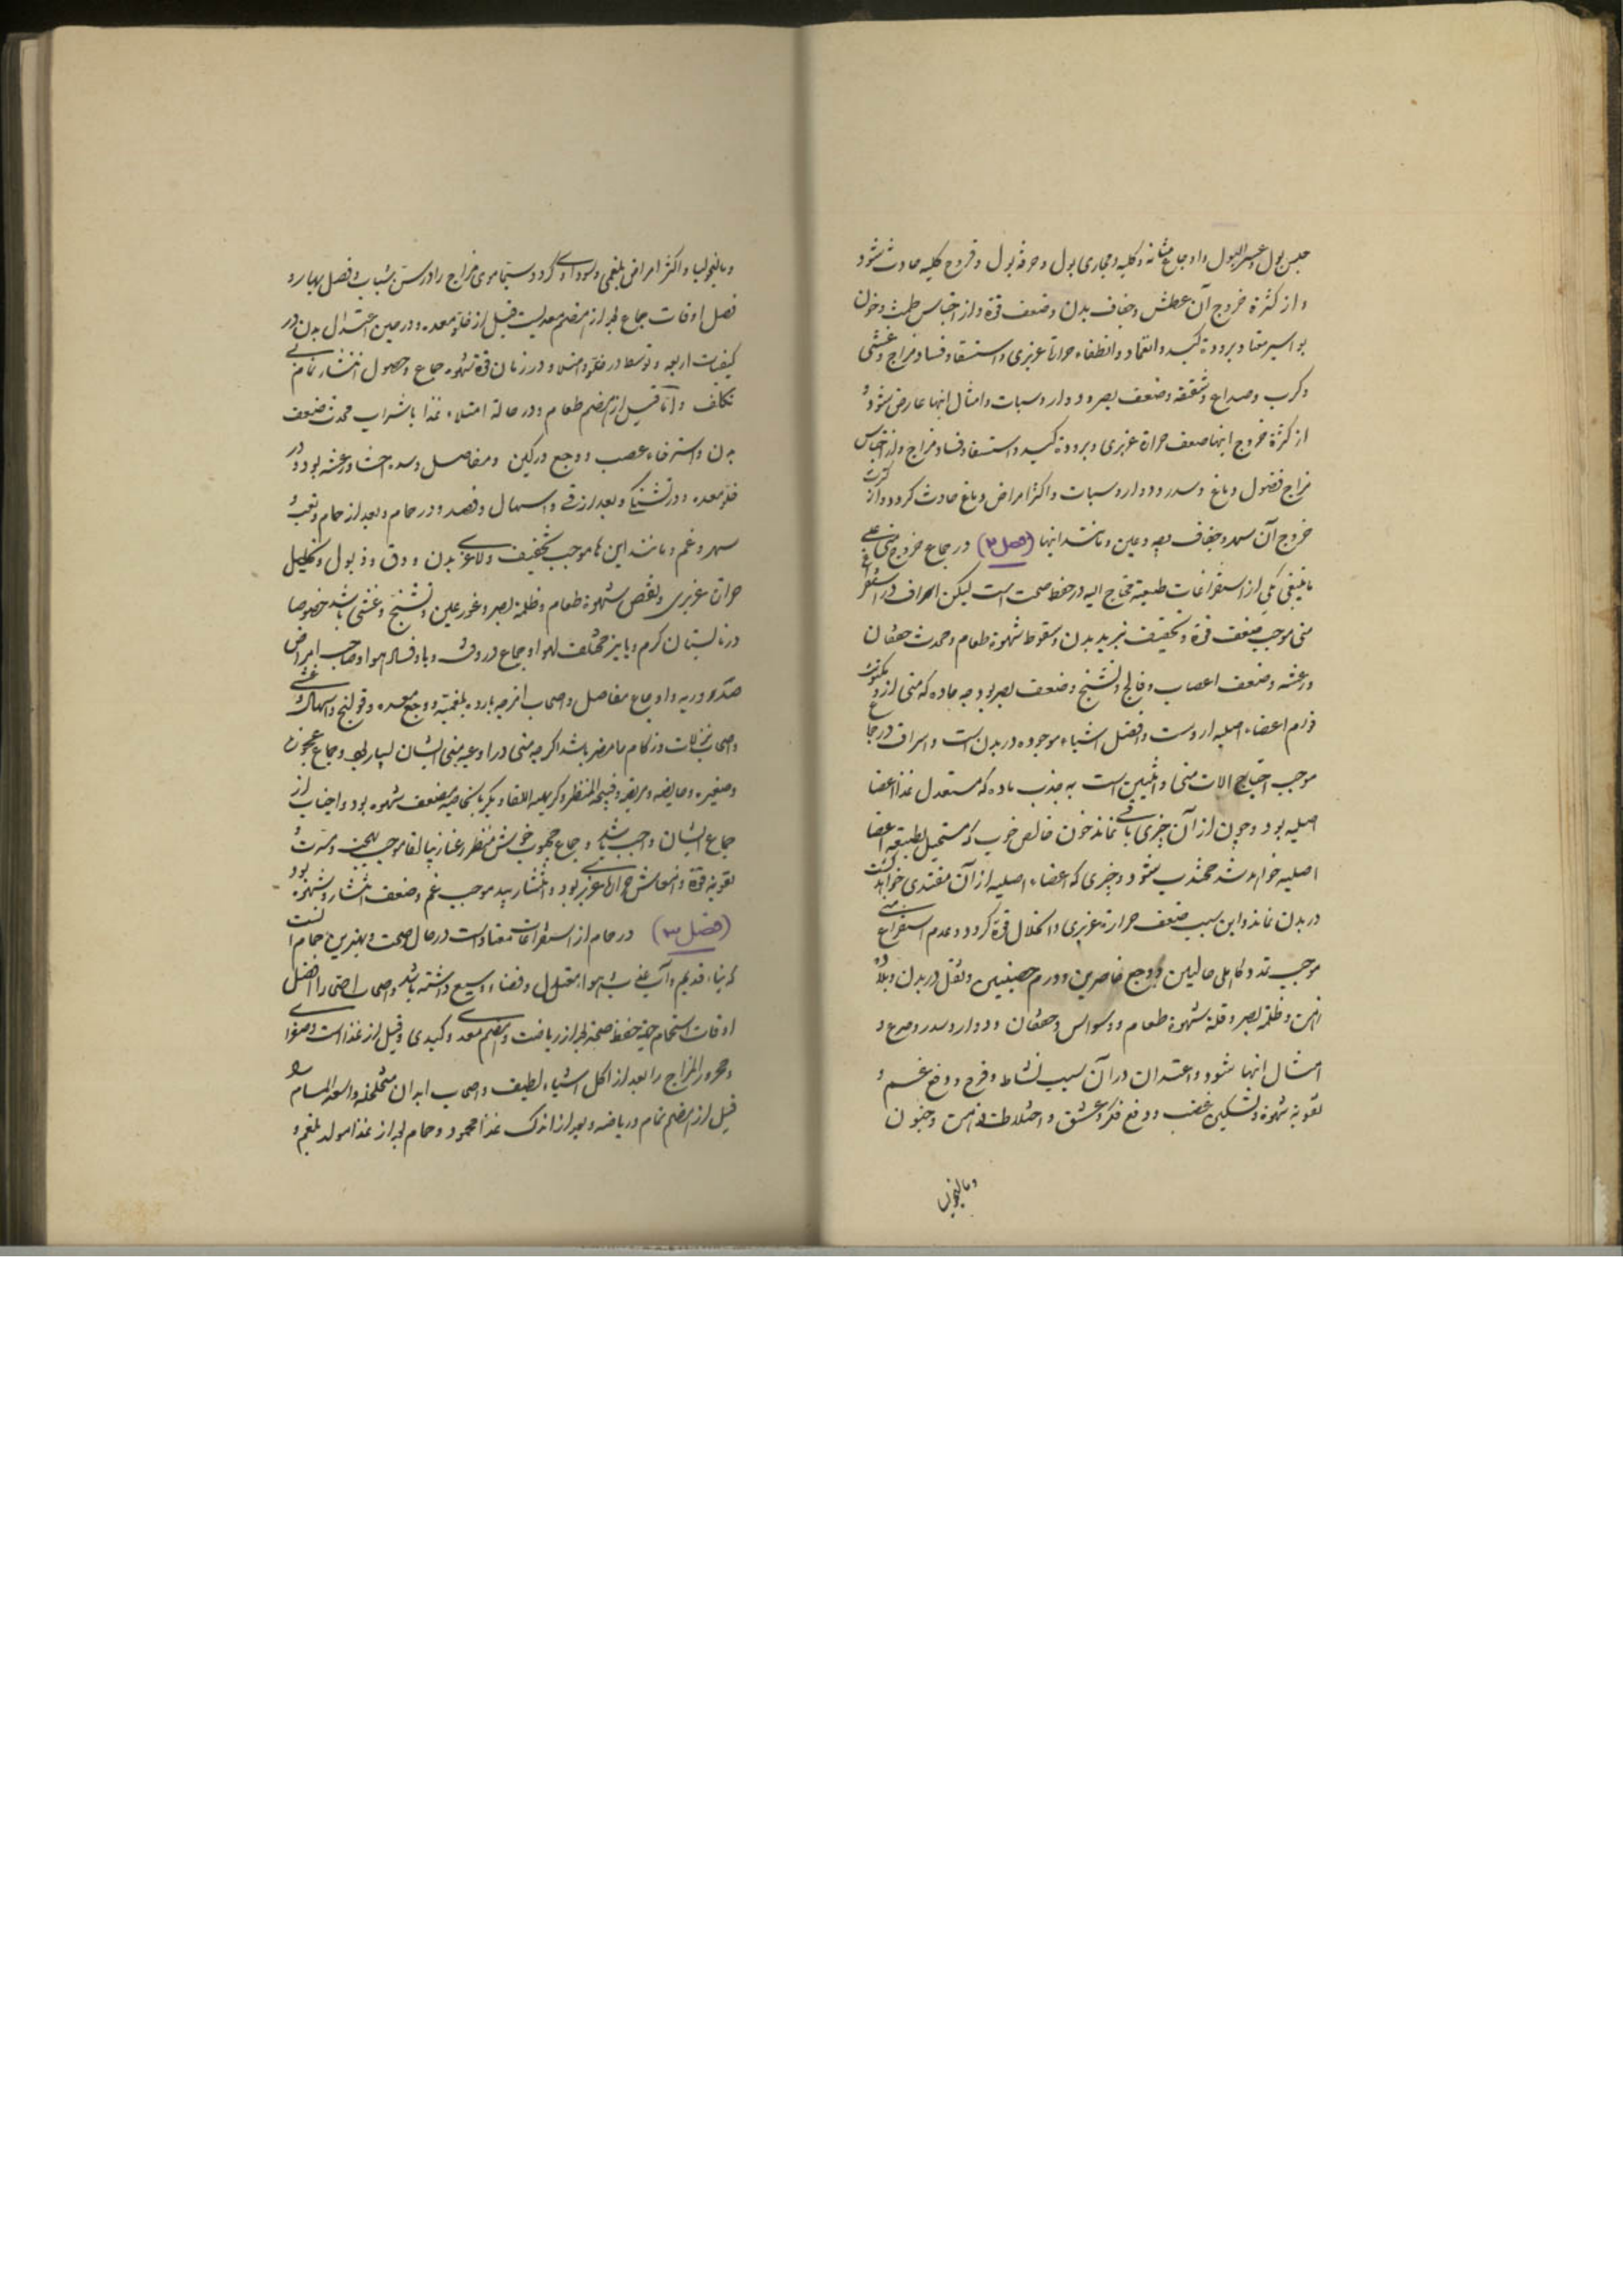 حبس بول و عسر البول و اوجاع مثانه و کلیه و مجاری بول و حرقه بول و قروح کلیه حادث شود
و از کثرة خروج آن عطش و جفاف بدن و ضعف قوة و از احتباس طمث و خون
بواسیر معتاد برودة کبد و انطفاء حرارة غریزی و استسقا و فساد مزاج و غشی
و کرب و صداع و شقیقه و ضعف بصر و دوار و سبات و امثال اینها عارض شود و
از کثرة خروج اینها ضعف حرارة غریزی و برودة کبد و استسقا و فساد مزاج و از احتباس
مزاج فضول دماغ و سدر و دوار و سبات و اکثر امراض دماغ حادث گردد و از کثرت
خروج آن سهر و جفاف و عین و مانند اینها (فصل ۲) در جماع خروج منی علی
ما ینبغی یکی از استفراغات طبیعیه محتاج الیه در حفظ صحت است لیکن اسراف در استفراغ
منی موجب ضعف قوة و تجفیف تبرید بدن و سقوط شهوة طعام و محدث خفقان
و رعشه و ضعف اعصاب و فالج و تشنج و ضعف بصر بود چه ماده که منی از و
اعضاء اصلیه از وست و افضل اشیاء موجوده در بدن است و اسراف در جماع
موجب احتیاج الات منی و انثیین است به جذب ماده که مستعد غذا اعضا
اصلیه بود و چون از آن چیزی باقی نماند خون خالص خوب که مستحیل بطبیعه اعضا
اصلیه خواهد شد منجذب شود و چیزی که اعضاء اصلیه از آن مغتذی خواهد گشت
در بدن نماند و این سبب ضعف حرارة غریزی و انحلال قوة گردد و عدم استفراغ منی
موجب تمدد حالبین و وجع خاصرین و ورم و ثقل در بدن و بلادة
ذهن و ظلمة بصر و قلة شهوة طعام و وسواس و خفقان و دوار و سدر و صرع و
امثال اینها شود و اعتدال در آن سبب نشاط و فرح و دفع غم و
تقویة شهوة و تسکین غضب و دفع فکر و عشق و اختلاط ذهن و جنون
و مالیخولیا
و مالیخولیا و اکثر امراض بلغمی و سوداوی گردد سیما دموی مزاج را در سن شباب و فصل بهار و
افضل اوقات جماع بعد از هضم معدیست قبل از خلو معده و در حین اعتدال بدن در
کیفیات اربعه و توسط در خلو و امتلا و در زمان قوة شهوة جماع و حصول انتشار تام بی
تکلف و اما قبل از هضم طعام و در حالة امتلاء غذا یا شراب محدث ضعف
بدن و استرخاء عصب و وجع ورکین و مفاصل و رعشه بود و در
خلو معده و در تشنگی و بعد از قی و اسهال و فصد و در حمام و بعد از حمام و تعب و
سهر و غم و مانند این ها موجب تجفیف و لاغری بدن و دق و ذبول و تحلیل
حرارة غریزی و نقص شهوة طعام و ظلمة بصر و غور عین و تشنج و غشی باشد خصوصا
در تابستان گرم و پاییز مختلف الهوا و جماع در وقت وبا و فساد هوا و صاحب امراض
صدر و ریه و اوجاع مفاصل و اصحاب امزجه بارده بلغمیه و وجع معده و قولنج و اسهال و غشی
و اصحاب نزلات و زکام را مضر باشد اگر چه منی در اوعیه منی ایشان بسیار بود و جماع عجوزه
و صغیره و حایضه و مریضه و قبیحه المنظر و کریهه اللقا و بکر بالخاصیه مضعف شهوة بود و اجتناب از
جماع ایشان واجب باشد و جماع محبوب خوش منظر موجب تهییج و مسرت و
تقویة قوة و انتعاش حرارة غریزی بود و موجب غم و ضعف انتشار و شهوة بود
(فصل ۳) در حمام از استفراغات معتاد است در حال صحت و بهترین حمام آنست
که بناء قدیم و آب و هوا معتدل و فضاء وسیع داشته باشد و اصحاب صحة را افضل
اوقات استحمام جهة حفظ صحة بعد از ریاضت و هضم معدی و کبدی و قبل از غذا است و صفراوی
و محرور المزاج را بعد از اکل اشیاء لطیف و اصحاب ابدان متخلخله و واسعة المسام
قبل از هضم تمام و ریاضه و بعد از اندک غذا محمود و حمام بعد از غذا مولد بلغم و